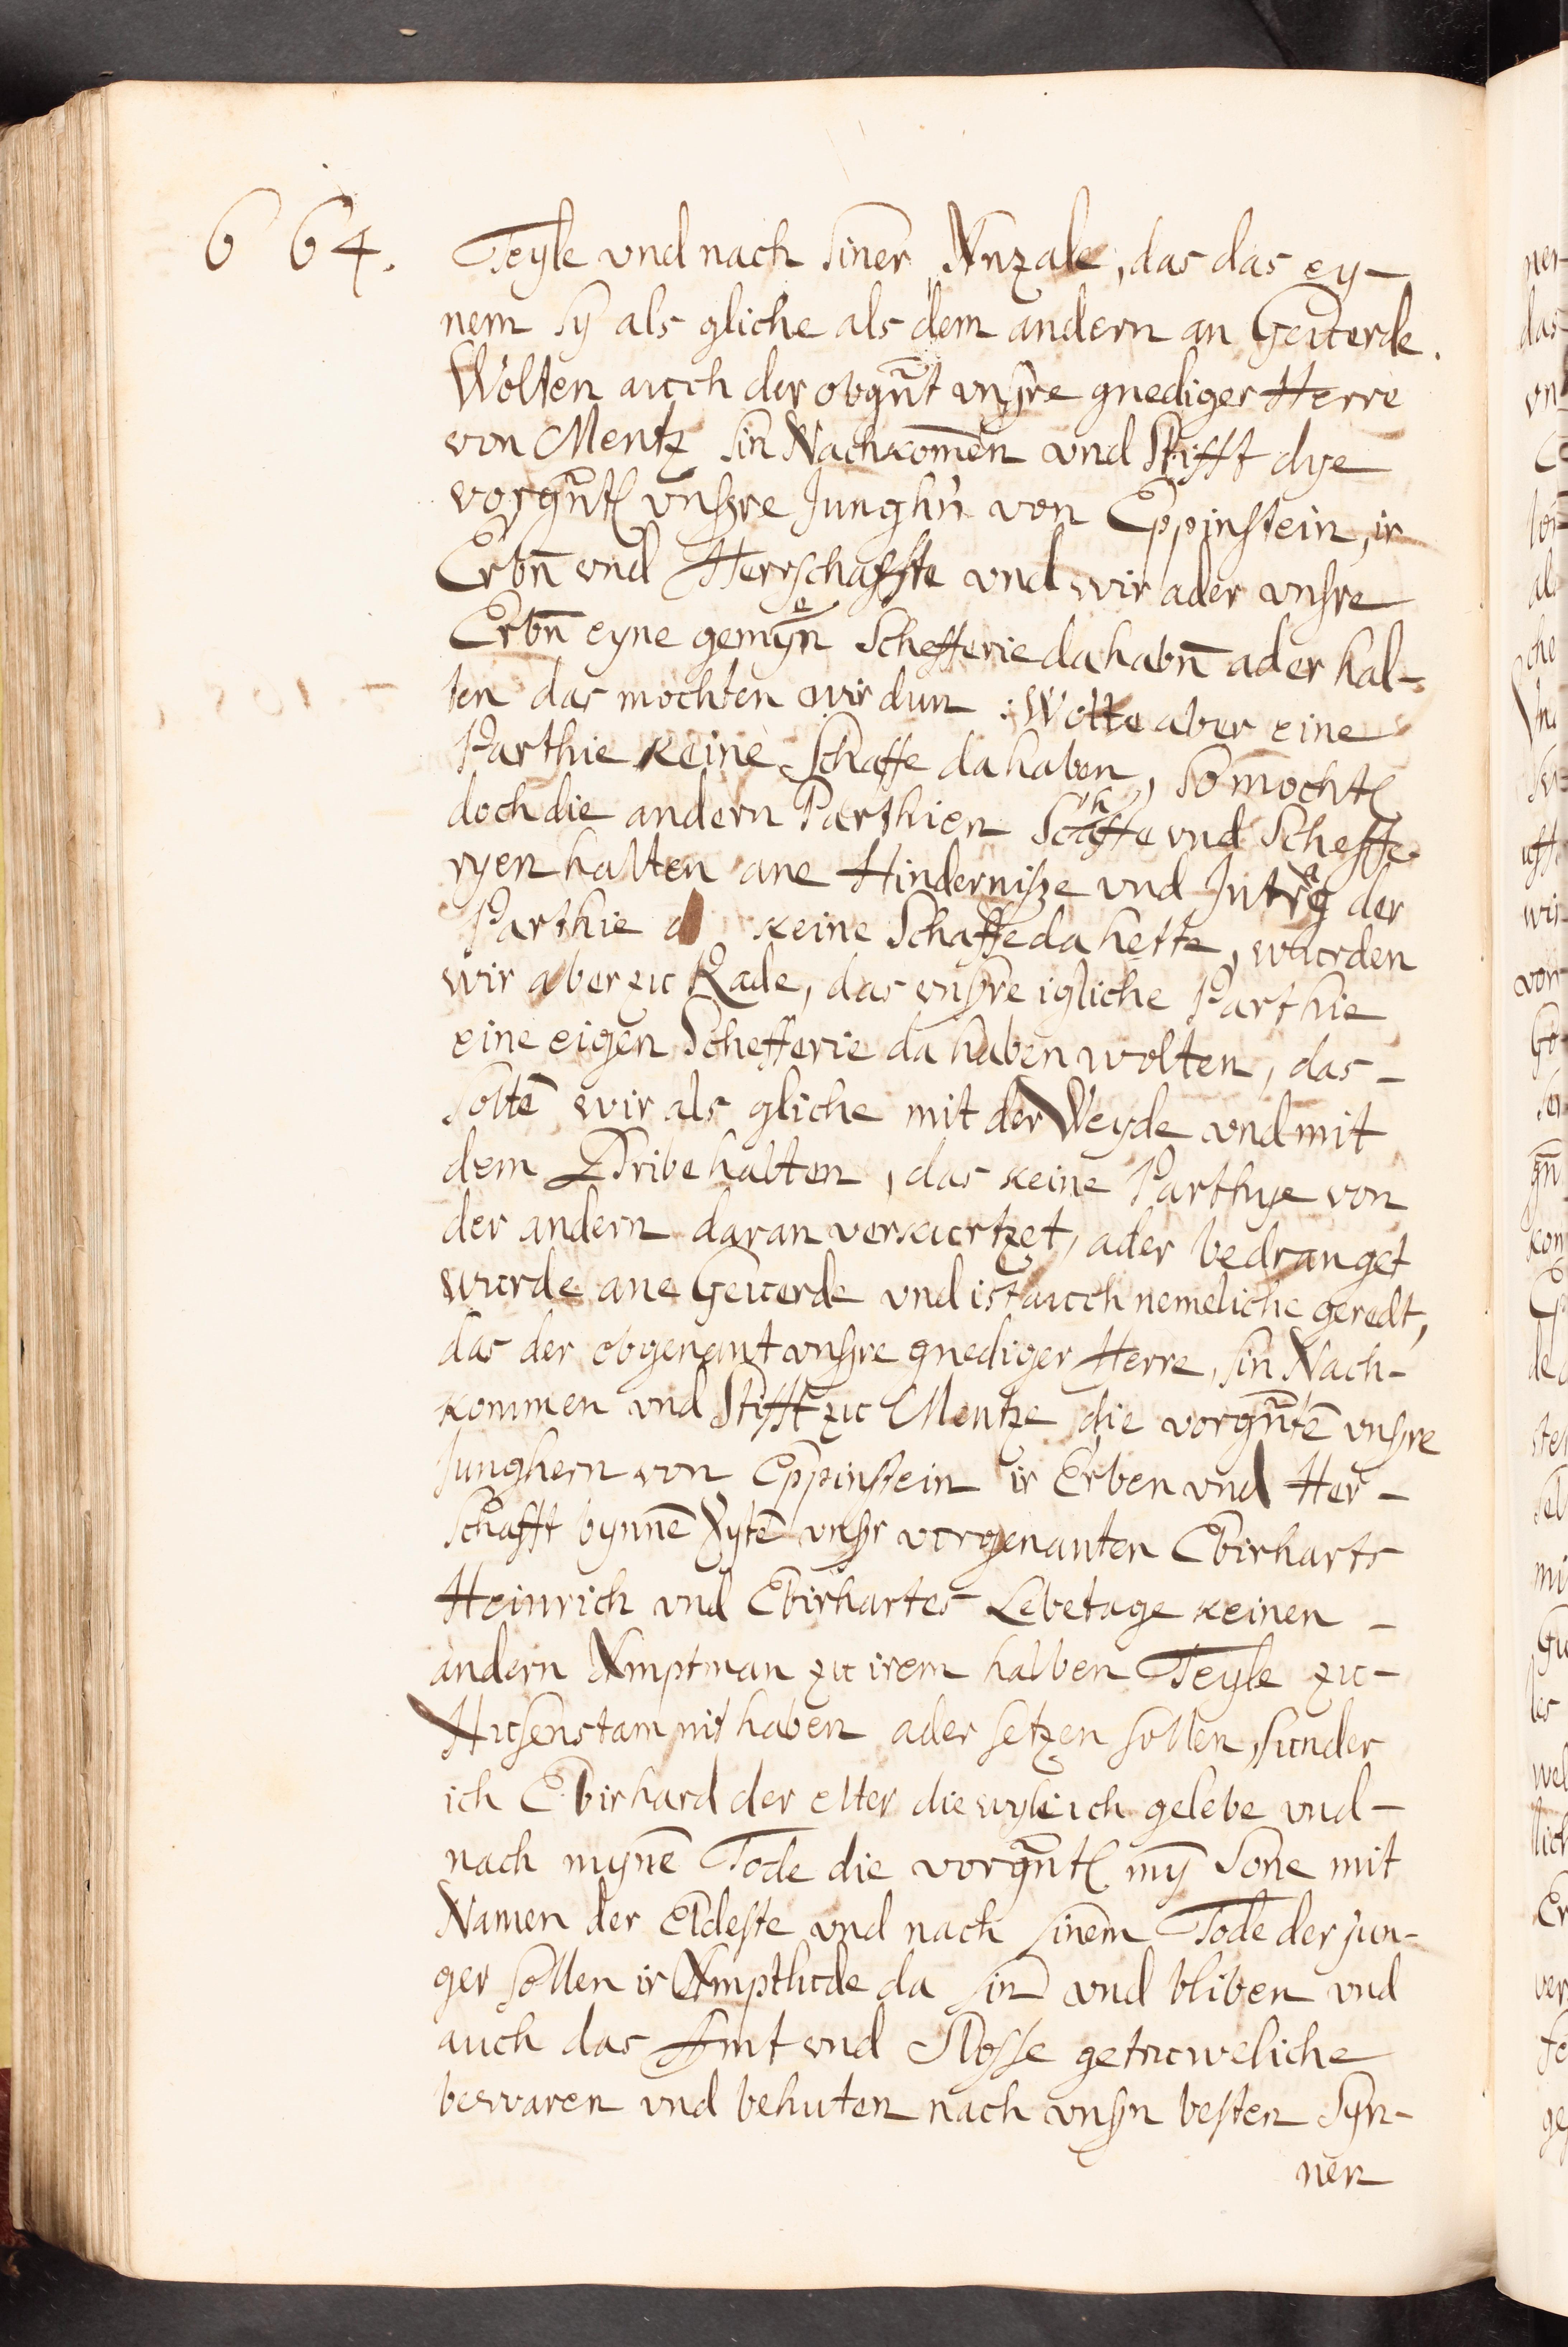 664.
Teyle vnd nach siner Anzale, das das ey-
nem sy als gliche als dem andern an Geuerde.
Wolten auch der obgn̄t vnsre gnediger Herre
von Mentz sin Nachkomen̄ vnd Stifft dye
vorgn̄t vnsre Junghn̄ von Eppinstein, ir
Erbn̄ vnd Herrschaffte vnd wir ader vnsre
Erbn̄ eyne gemeyn Schefferie da habn̄ ader hal-
ten das mochten wir dun : Wolte aber eine
Parthie keine Schaffe da haben, so mocht
doch die andern Parthien Schaffe vnd Scheffe-
ryen halten ane Hindernisze vnd Intrag der
Parthie d keine Schaffe da hette, wurden
wir aber zu Rade, das vnsre igliche Parthie
eine eigen Schefferie da haben wolten, das-
solte̅ wir als gliche mit der Weyde vnd mit
dem Dribe halten, das keine Parthye von
der andern daran verkurtzet, ader bedranget
wurde ane Geuerde vnd ist auch nemeliche geredt,
das der obgenant vnsre gnediger Herre, sin Nach-
kommen vnd Stifft zu Mentze die vorgn̄te̅ vnsre
Junghern von Eppinstein ir Erben vnd Her-
schafft bynne̅ Zyte̅ vnsr vorgenanten Ebirharts
Heinrich vnd Ebirhartes Lebetage keinen -
andern Amptman zu irem halben Teyle zu-
Husenstam nit haben ader setzen sollen, sunder
ich Ebirhard der elter die wyle ich gelebe vnd-
nach myne̅ Tode die vorgn̄t my̅ Sone mit
Namen der Eldeste vnd nach sinem Tode der jun-
ger sollen ir Amptlude da sin vnd bliben vnd
auch das Amt vnd Slosse getruweliche
bewaren vnd behuten nach vnsn besten Syn-
nen